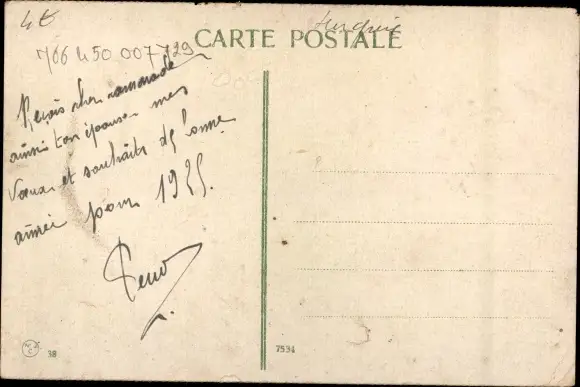 4€
Turquie
706 450 007 729
CARTE POSTALE
Reçois cher camarade
ainsi ton épouse mes
Vœux et souhaits de bonne
année pour 1925.
38
7534